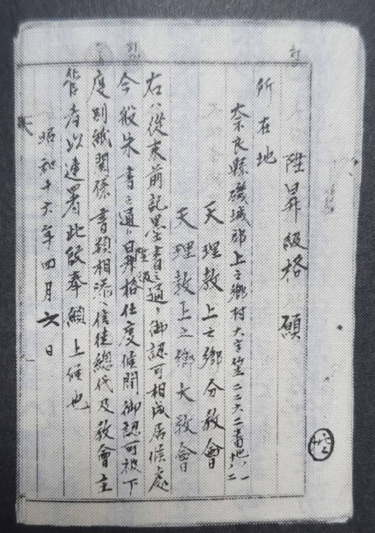 陞昇級格願
所在地
奈良縣磯城郡上之郷村大字笠二二六二番地ノ一、二
天理教上之郷分教會
天理教上之郷大教會
右ハ從来前記墨書之通リ御認可相成居候處
今般朱書之通リ昇格陞級仕度候間御認可被下
度別紙関係書類相添へ信徒總代及教會主
管者以連署此段奉願上候也
昭和十六年四月六日